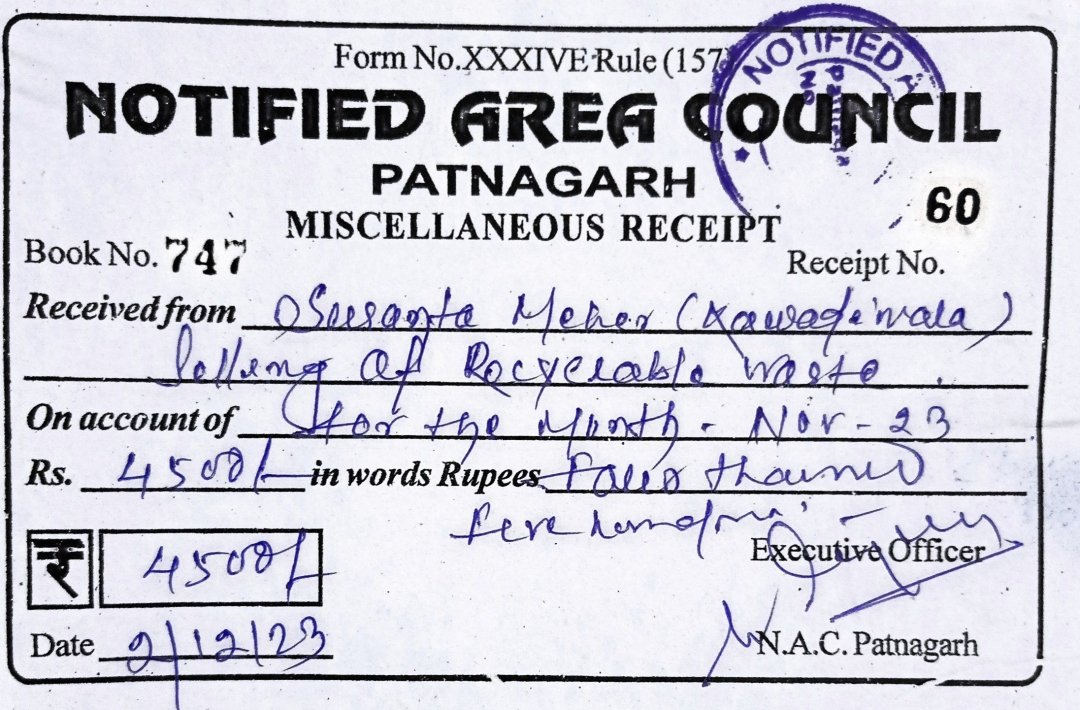 Form No.XXXIVE Rule (157
NOTIFIED A
NOTIFIED AREA COUNCIL
PATNAGARH
MISCELLANEOUS RECEIPT
60
Book No. 747
Receipt No.
Received from Susanta Meher (Kawadiwala)
Selling of Recyclable waste.
On account of for the Month - Nov - 23
Rs. 4500/- in words Rupees Four thousand
five hundred
Executive Officer
₹ 4500/-
Date 2/12/23
N.A.C. Patnagarh